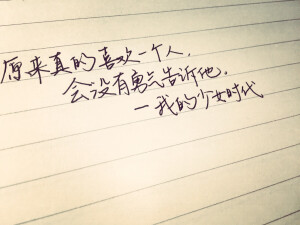 原来真的喜欢一个人,
会没有勇气告诉他.
—我的少女时代